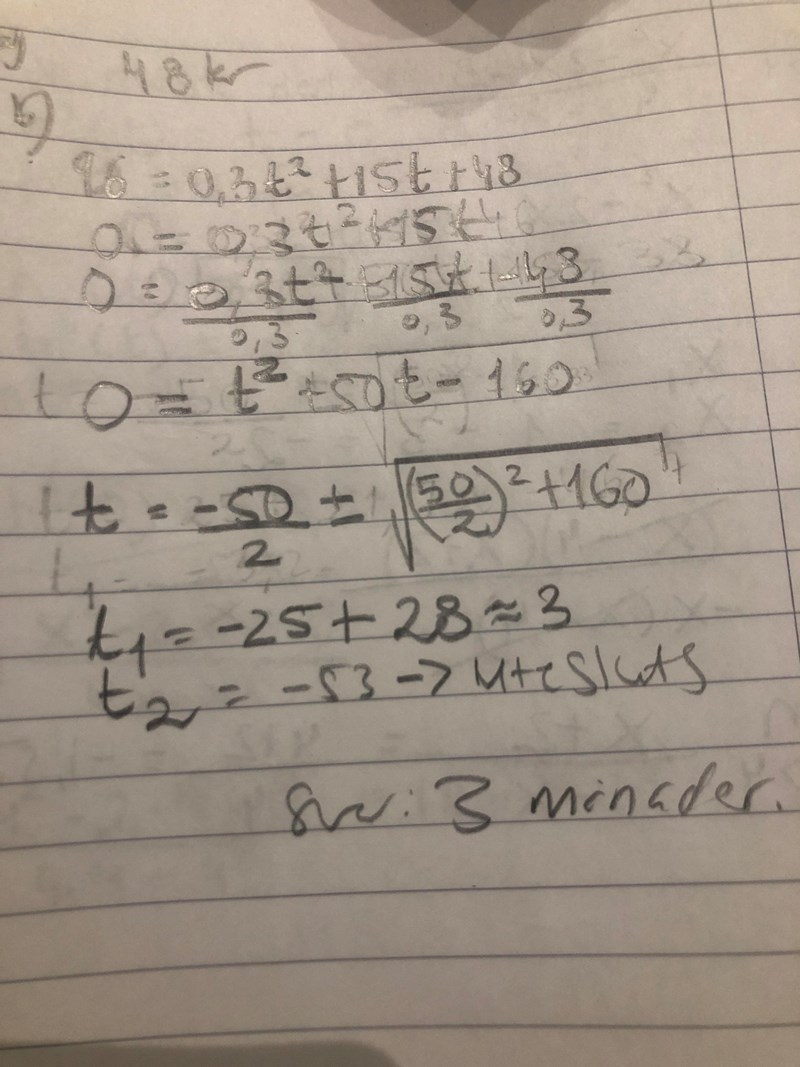 48 kr
b)
96 = 0,3t² + 15t + 48
0 = 0,3t² + 15t
0 = 0,3t²/0,3 + 15t/0,3 - 48/0,3
0 = t² + 50t - 160
t = -50/2 ± √((50/2)² + 160)
t₁ = -25 + 28 ≈ 3
t₂ = -53 → utesluts
Svar: 3 månader.